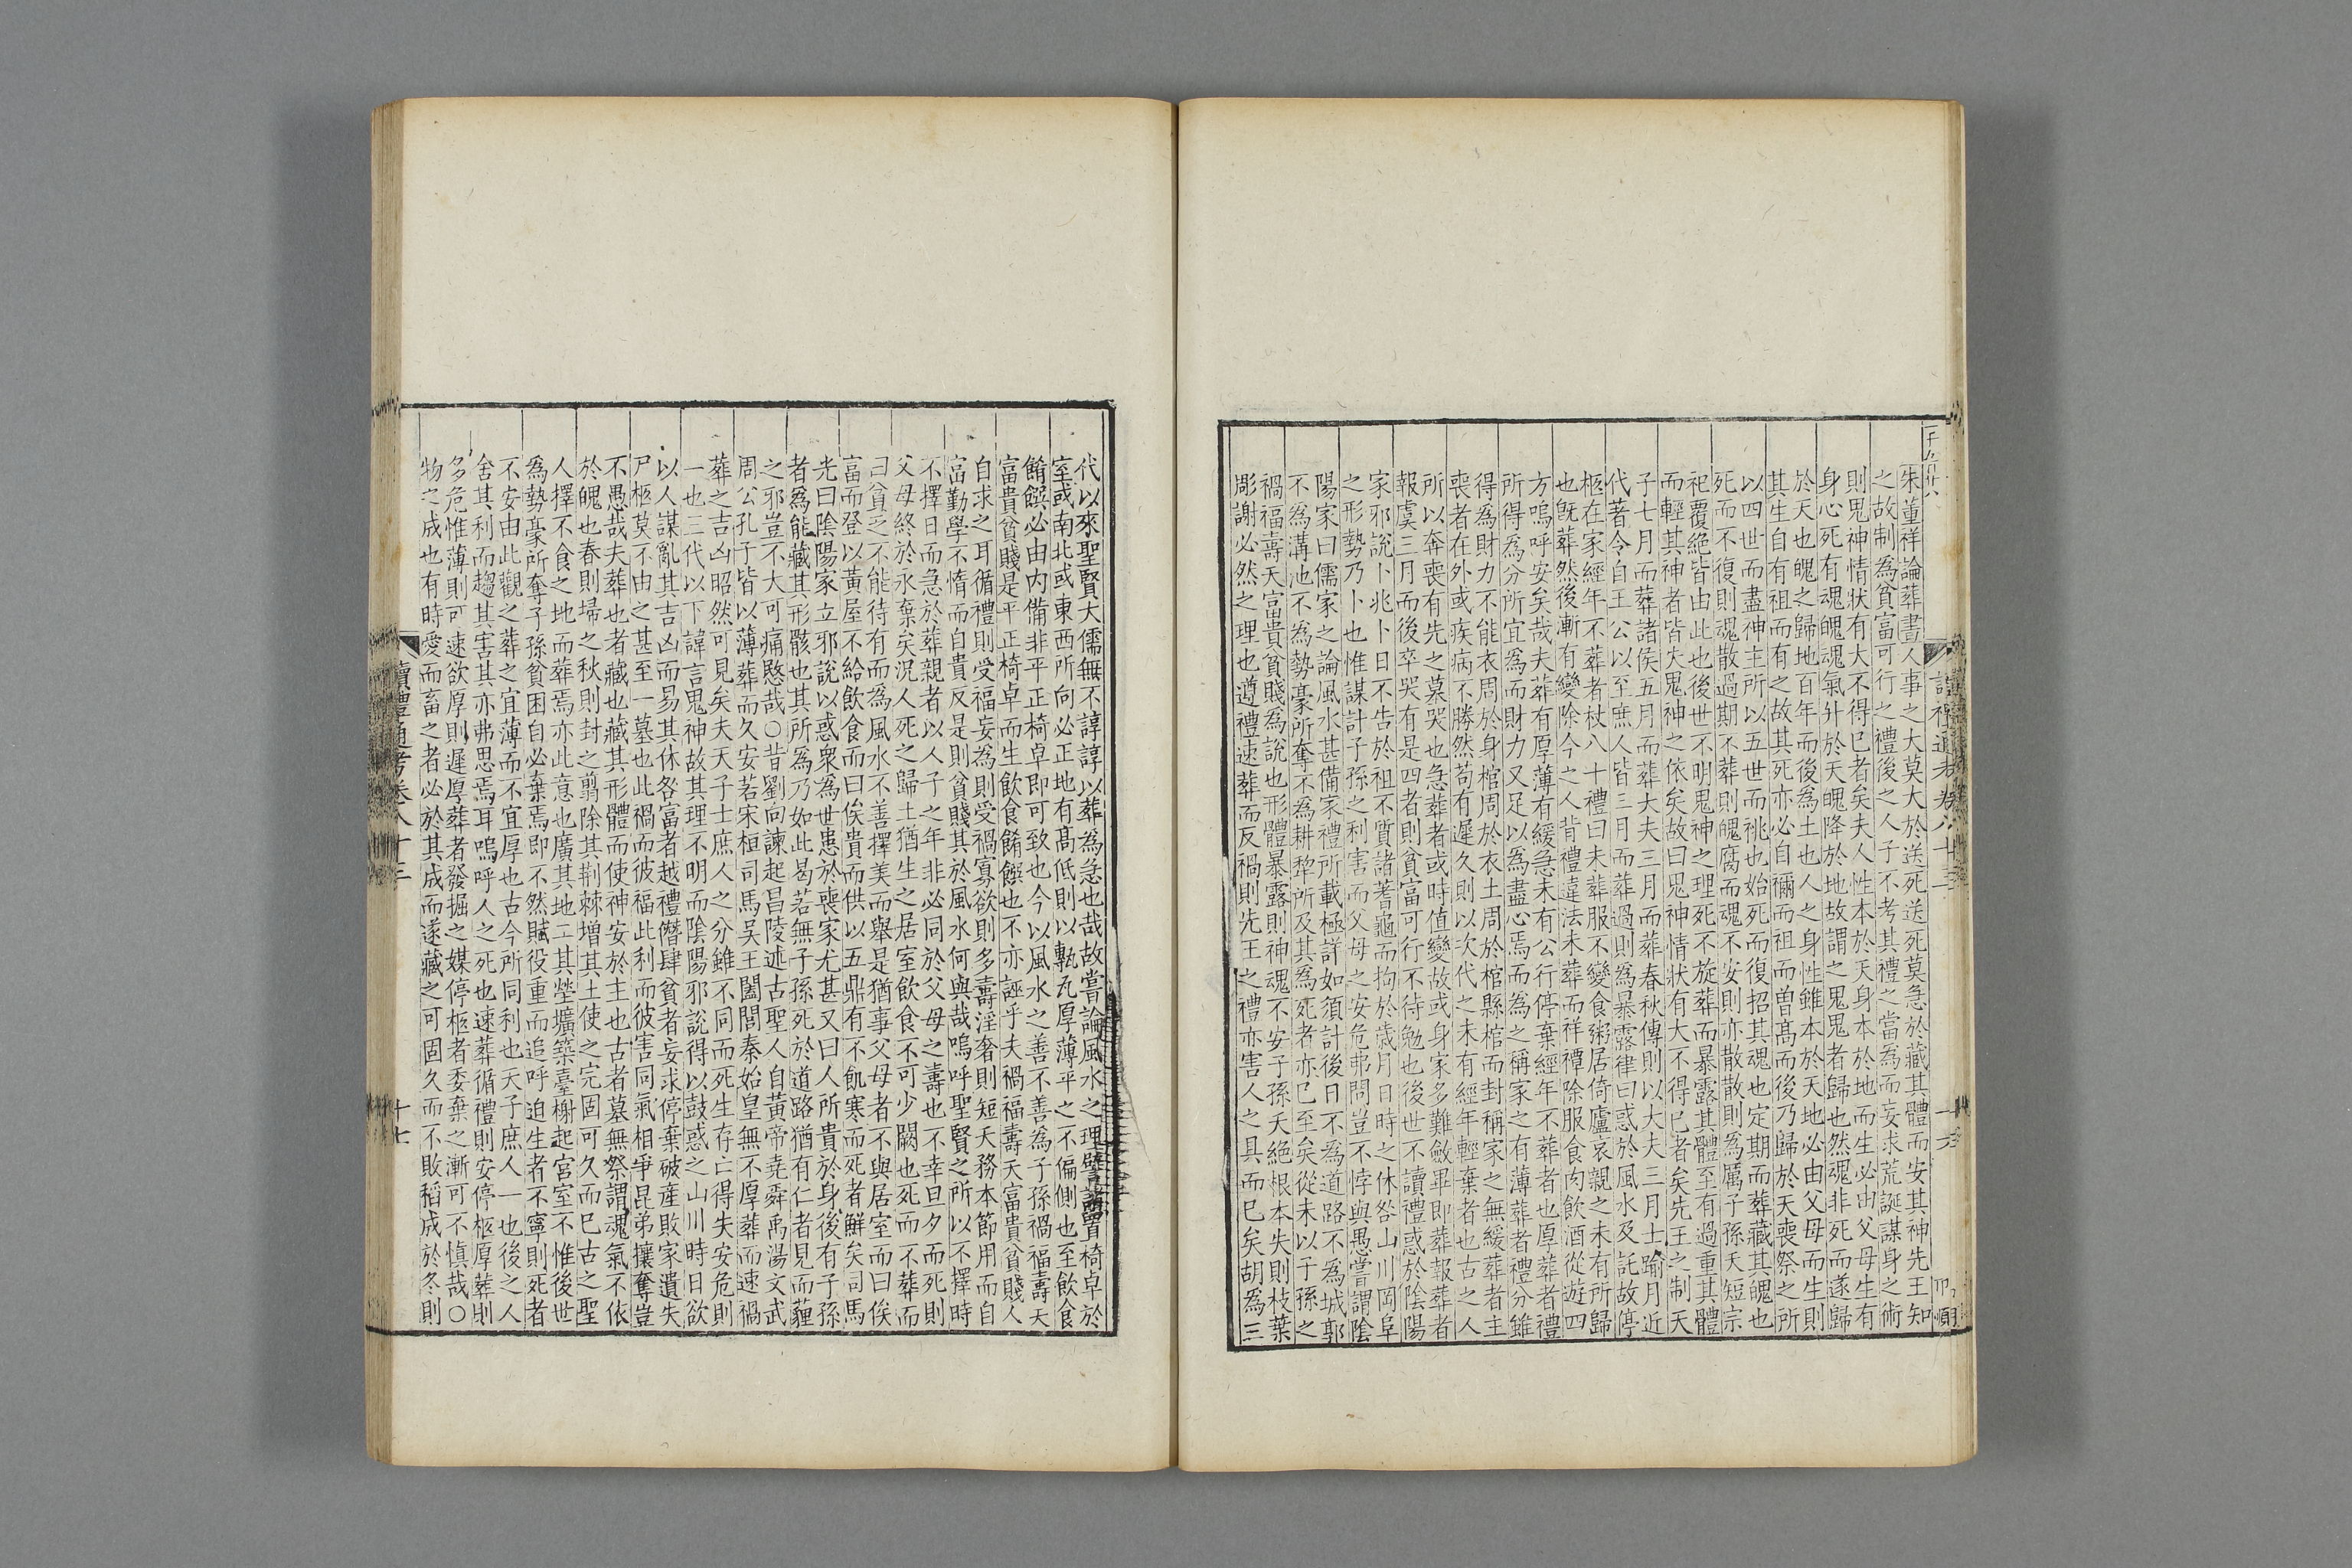 朱董祥論葬書人事之大莫大於送死送死莫急於藏其體而安其神先王知
之故制為貧富可行之禮後之人子不考其禮之當為而妄求荒誕謀身之術
則鬼神情狀有大不得已者矣夫人性本於天身本於地而生必由父母生有
身心死有魂魄魂氣升於天魄降於地故謂之鬼鬼者歸也然魂非死而遂歸
於天也魄之歸地百年而後為土也人之身性雖本於天地必由父母而生則
其生自有祖而有之故其死亦必自禰而祖而曾高而後乃歸於天喪祭之所
以四世而盡神主所以五世而祧也始死而復招其魂也定期而葬藏其魄也
死而不復則魂散過期不葬則魄腐而魂不安則亦散散則為厲子孫夭短宗
祀覆絕皆由此也後世不明鬼神之理死不旋葬而暴露其體至有過重其體
而輕其神者皆失鬼神之依矣故曰鬼神情狀有大不得已者矣先王之制天
子七月而葬諸侯五月而葬大夫三月而葬春秋傳則以大夫三月士踰月近
代著令自王公以至庶人皆三月而葬過則為暴露律曰惑於風水及託故停
柩在家經年不葬者杖八十禮曰未葬服不變食粥居倚廬哀親之未有所歸
也旣葬然後漸有變除今之人背禮違法未葬而祥禫除服食肉飲酒從遊四
方嗚呼安矣哉夫葬有厚薄有緩急未有公行停棄經年不葬者也厚葬者禮
所得為分所宜為而財力又足以為盡心焉而為之稱家之有薄葬者禮分雖
得為財力不能衣周於身棺周於衣土周於棺縣棺而封稱家之無緩葬者主
喪者在外或疾病不勝然苟有遲久則以次代之未有經年輕棄者也古之人
所以奔喪有先之墓哭也急葬者或時值變故或身家多難斂畢即葬報葬者
報虞三月而後卒哭有是四者則貧富可行不待勉也後世不讀禮惑於陰陽
家邪說卜兆卜日不告於祖不質諸蓍龜而拘於歲月日時之休咎山川岡阜
之形勢乃卜也惟謀計子孫之利害而父母之安危弗問豈不悖與愚嘗謂陰
陽家曰儒家之論風水甚備家禮所載極詳如須計後日不為道路不為城郭
不為溝池不為勢豪所奪不為耕犂所及其為死者亦已至矣從未以子孫之
禍福壽夭富貴貧賤為說也形體暴露則神魂不安子孫夭絕根本失則枝葉
彫謝必然之理也遵禮速葬而反禍則先王之禮亦害人之具而已矣胡為三
代以來聖賢大儒無不諄諄以葬為急也哉故嘗論風水之理譬諸置椅卓於
室或南北或東西所向必正地有高低則以甎瓦厚薄平之不偏側也至飲食
餚饌必由内備非平正椅卓即可致也今以風水之善不善為子孫禍福壽夭
富貴貧賤是平正椅卓而生飲食餚饌也不亦誣乎夫禍福壽夭富貴貧賤人
自求之耳循禮則受福妄為則受禍寡欲則多壽淫奢則短夭務本節用而自
富勤學不惰而自貴反是則貧賤其於風水何與哉嗚呼聖賢之所以不擇時
不擇日而急於葬親者以人子之年非必同於父母之壽也不幸旦夕而死則
父母終於永棄矣況人死之歸土猶生之居室飲食不可少闕也死而不葬而
曰貧乏不能待有而為風水不善擇美而舉是猶事父母者不與居室而曰俟
富而登以黃屋不給飲食而曰俟貴而供以五鼎有不飢寒而死者鮮矣司馬
光曰陰陽家立邪說以惑衆為世患於喪家尤甚又曰人所貴於身後有子孫
者為能藏其形骸也其所為乃如此曷若無子孫死於道路猶有仁者見而薶
之邪豈不大可痛愍哉○昔劉向諫起昌陵述古聖人自黃帝堯舜禹湯文武
周公孔子皆以薄葬而久安若宋桓司馬吳王闔閭秦始皇無不厚葬而速禍
葬之吉凶昭然可見矣夫天子士庶人之分雖不同而死生存亡得失安危則
一也三代以下諱言鬼神故其理不明而陰陽邪說得以鼓惑之山川時日欲
以人謀亂其吉凶而易其休咎富者越禮僭肆貧者妄求停棄破產敗家遺失
尸柩莫不由之甚至一墓也此禍而彼福此利而彼害同氣相爭昆弟攘奪豈
不愚哉夫葬也者藏也藏其形體而使神安於主也古者墓無祭謂魂氣不依
於魄也春則埽之秋則封之翦除其荆棘增其土使之完固可久而已古之聖
人擇不食之地而葬焉亦此意也廣其地工其塋壙築臺榭起宮室不惟後世
為勢豪所奪子孫貧困自必棄焉即不然賦役重而追呼迫生者不寧則死者
不安由此觀之葬之宜薄而不宜厚也古今所同利也天子庶人一也後之人
舍其利而趨其害其亦弗思焉耳嗚呼人之死也速葬循禮則安停柩厚葬則
多危惟薄則可速欲厚則遲厚葬者發掘之媒停柩者委棄之漸可不慎哉○
物之成也有時愛而畜之者必於其成而遂藏之可固久而不敗稻成於冬則
讀禮通考卷八十三
十七